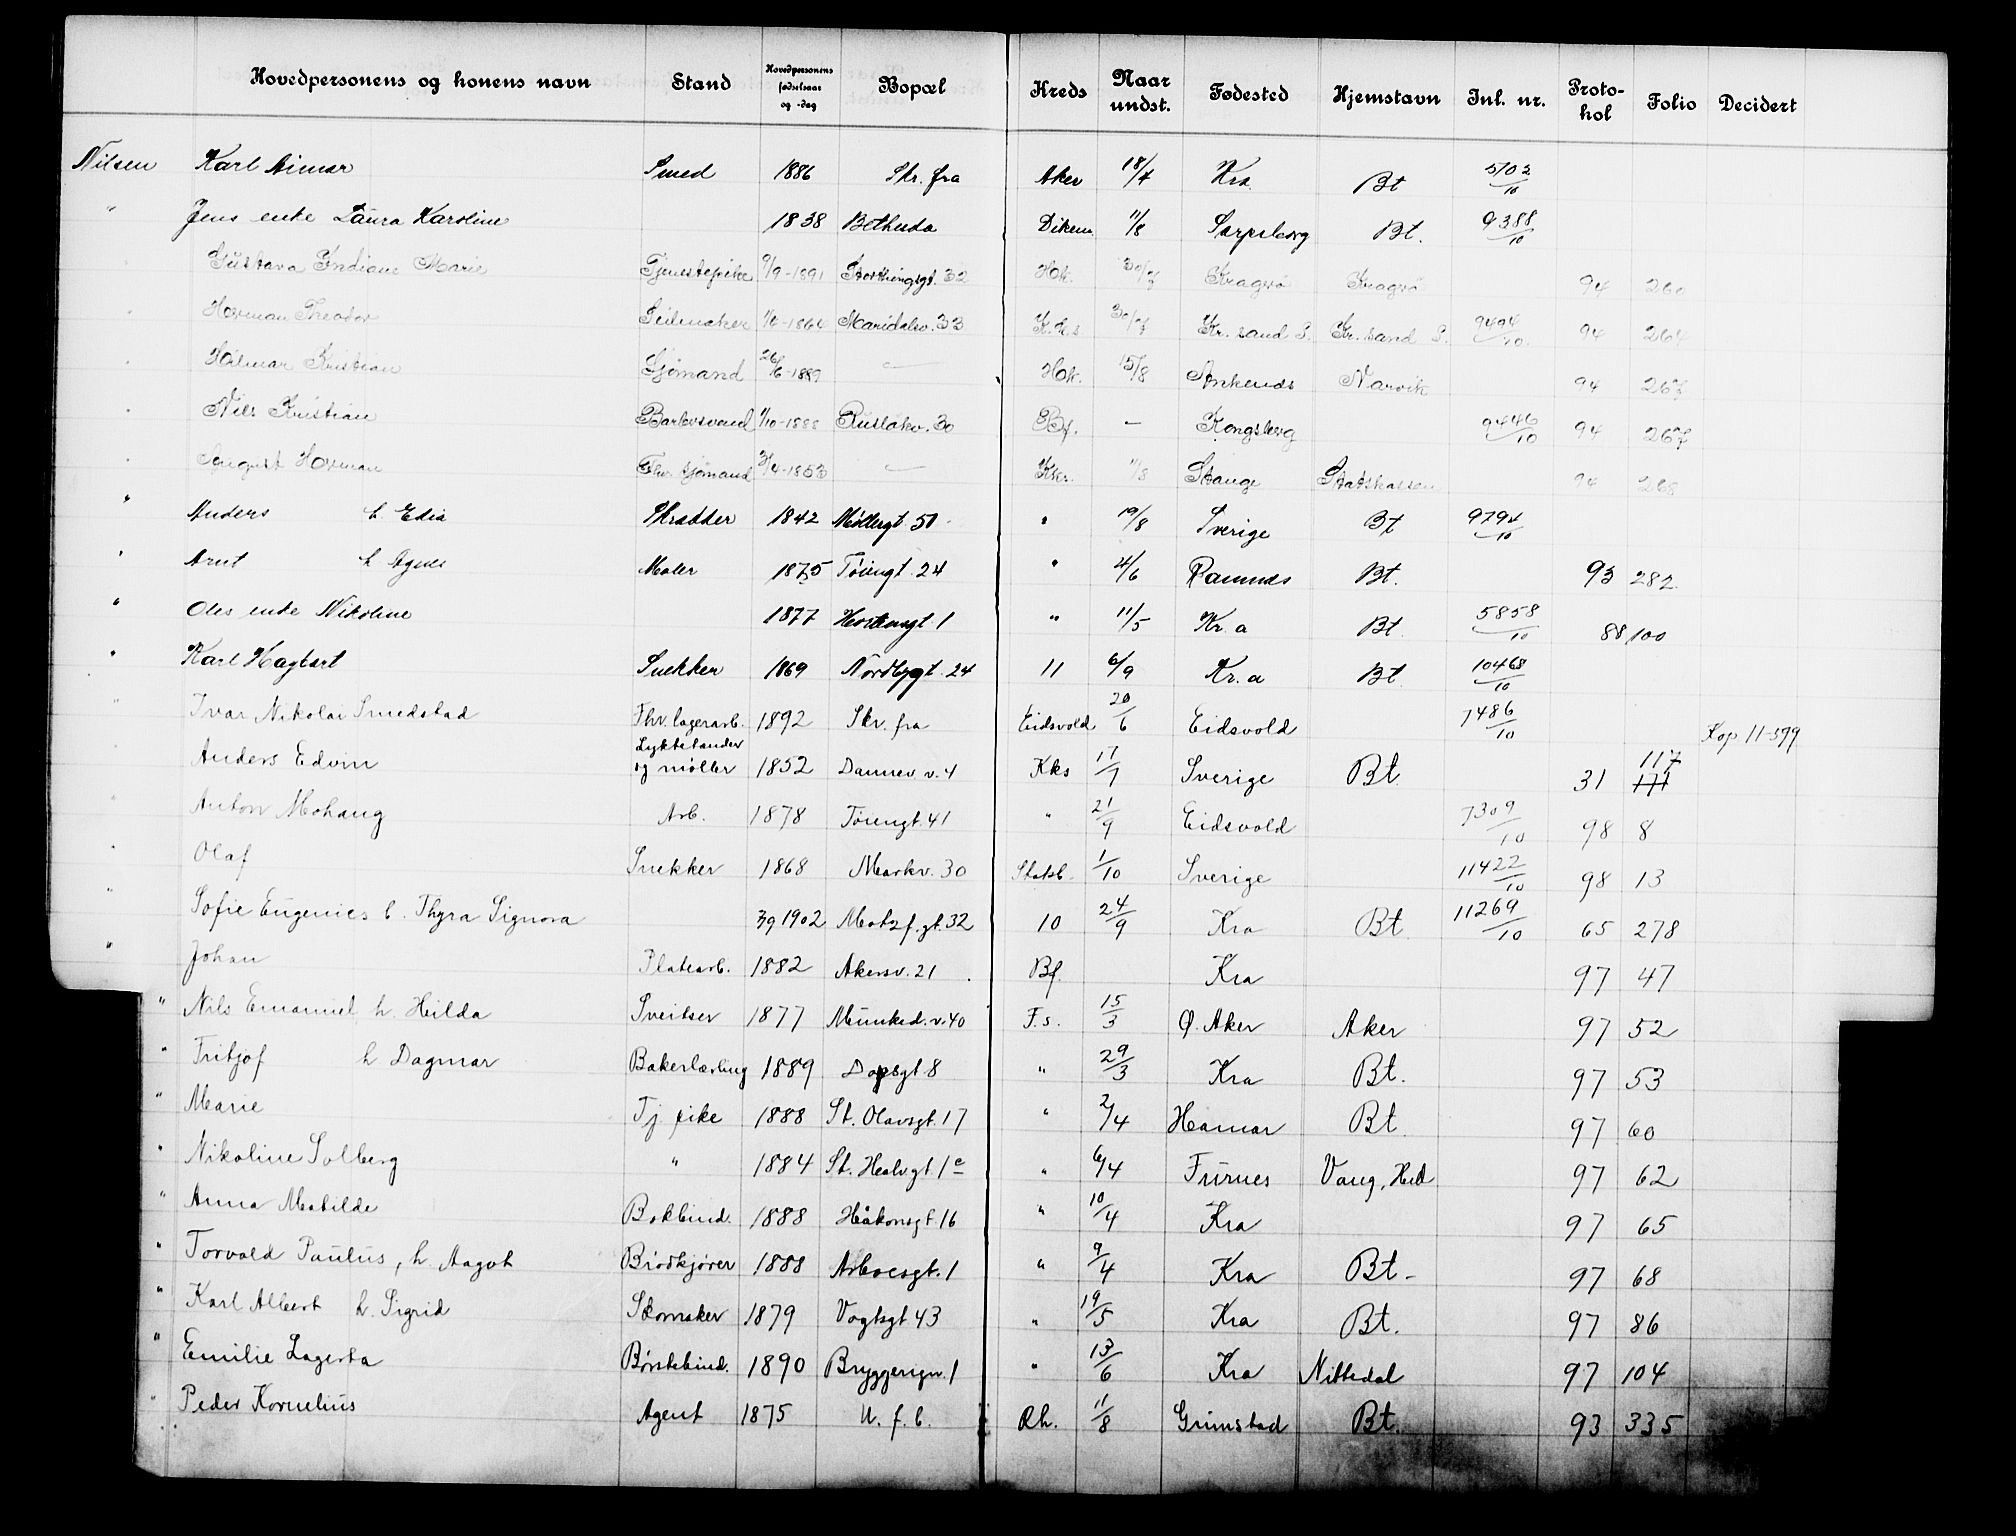 Hovedpersonens og konens navn Stand Hovedpersonens fødselsaar og -dag Bopæl Kreds Naar undst. Fødested Hjemstavn Inl. nr. Protokol Folio Decidert
Nilsen Karl Aimar Smed 1886 Skr. fra Aker 18/4 Kra. Bt 5702/10
" Jens enke Laura Karoline 1838 Bethesda Dikem. 11/8 Sarpsborg Bt. 9388/10
" Gustava Indiane Marie Tjenestepike 9/9-1891 Storthingsgt. 32 Hk. 30/7 Kragerø Kragerø 94 260
" Herman Theodor Seilmaker 1864 Maridalsv. 33 K.k.s 30/7 Kr.sand S. Kr.sand S. 9494/10 94 264
" Hilmar Kristian Sjömand 26/6-1889 — Hk. 15/8 Ankenes Narvik 94 267
" Nils Kristian 1/10-1888 Rusløkv. 30 Bf. — Kongsberg 9446/10 94 267
" August Herman Fhv. sjömand 3/4-1853 — Kks. 11/8 Stange Statskassen 94 268
" Anders h. Edia Skrædder 1842 Møllergt 50 " 19/8 Sverige Bt 9794/10
" Arnt h Agnes Maler 1875 Töiengt. 24 " 4/6 Ramnes Bt. 93 282
" Oles enke Nikoline 1877 1 " 11/5 Kr.a Bt. 5858/10 88 100
" Karl Hagbart Snekker 1869 Nordbygt. 24 11 6/9 Kr.a Bt. 10468/10
" Ivar Nikolai Smedstad Fhv. lagerarb. 1892 Skr. fra Eidsvold 20/6 Eidsvold 7486/10 Kop 11-599
" Anders Edvin Lyktetænder og møller 1852 Dannev. v. 4 Kks 17/7 Sverige Bt. 31 117
" Anton Mohaug Arb. 1878 Töiengt. 41 " 21/9 Eidsvold 7309/10 98 8
" Olaf Snekker 1868 Markv. 30 Statsb. 1/10 Sverige 11422/10 98 13
" Sofie Eugenies b. Thyra Signora 3/9 1902 Motzf.gt. 32 10 24/9 Kra Bt. 11269/10 65 278
" Johan Platearb. 1882 Akersv. 21 Bf. Kra 97 47
" Nils Emanuel h. Hilda Sveitser 1877 Munked.v. 40 F.s. 15/3 Ø. Aker Aker 97 52
" Fritjof h Dagmar Bakerlærling 1889 Dopsgt 8 " 29/3 Kra Bt. 97 53
" Marie Tj. pike 1888 St. Olavsgt. 17 " 2/4 Hamar Bt. 97 60
" Nikoline Solberg " 1884 St. Halvgt. 1e " 6/4 Furnes Vang, Hed 97 62
" Anna Matilde Bokbind. 1888 Håkonsgt. 16 " 10/4 Kra 97 65
" Torvald Paulus, h. Aagot Brödkjører 1888 Arboesgt. 1 " 9/4 Kra Bt- 97 68
" Karl Albert h. Sigrid Skomaker 1879 Vogtsgt 43 " 19/5 Kra Bt. 97 86
" Emilie Lagerta Børstebind. 1890 Bryggerign. 1 " 13/6 Kra Nittedal 97 104
" Peder Kornelius Agent 1875 U.f.b. Rh. 11/8 Grimstad Bt. 93 335